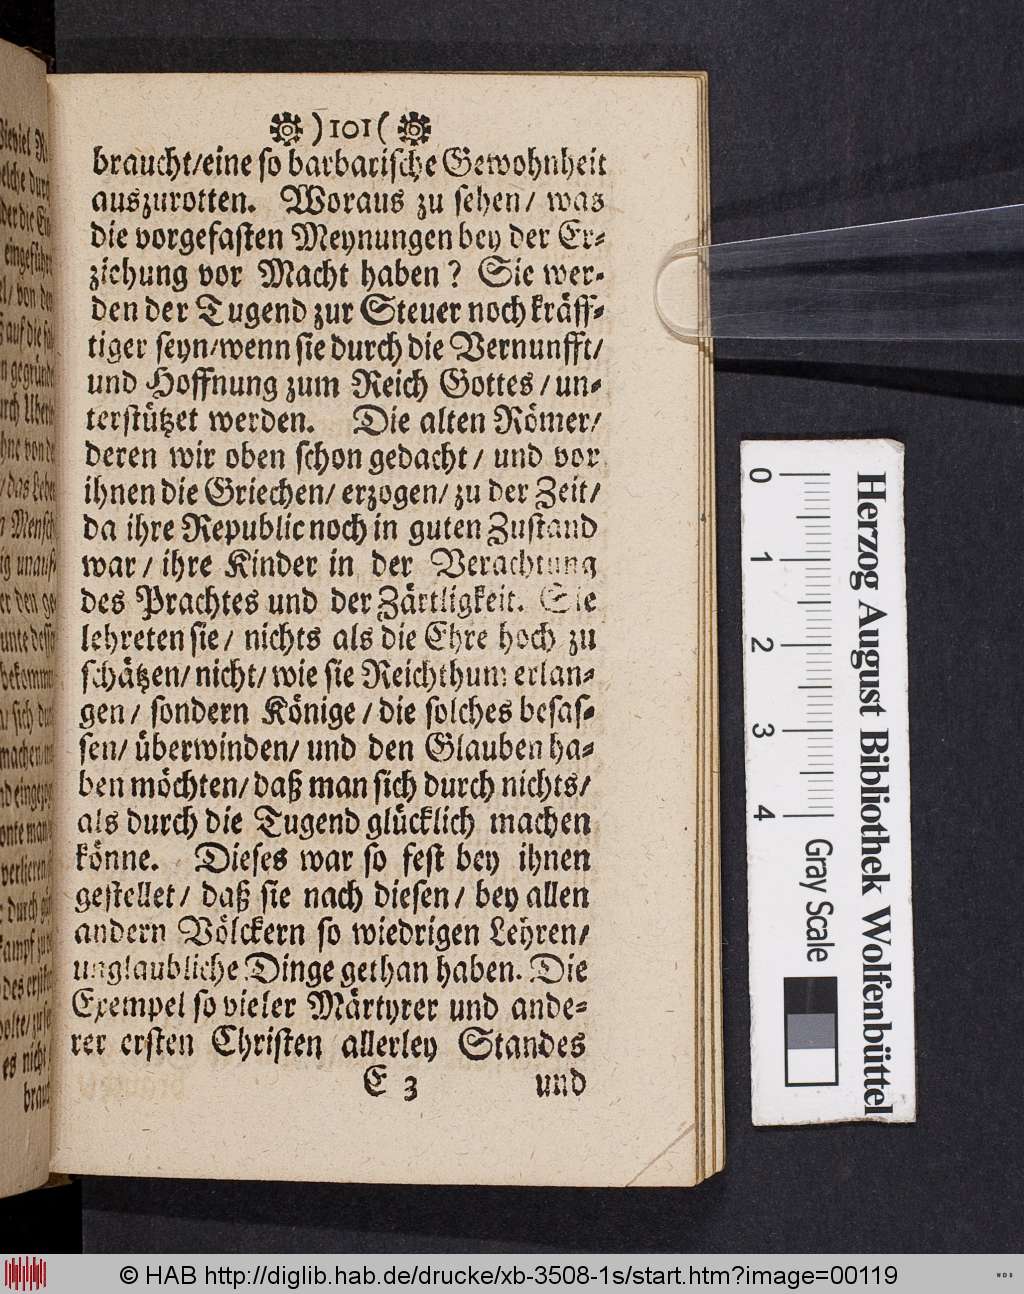 )101(
braucht/eine so barbarische Gewohnheit
auszurotten. Woraus zu sehen/ was
die vorgefasten Meynungen bey der Er-
ziehung vor Macht haben? Sie wer-
den der Tugend zur Steuer noch kräff-
tiger seyn/wenn sie durch die Vernunfft/
und Hoffnung zum Reich Gottes/un-
terstützet werden. Die alten Römer/
deren wir oben schon gedacht/ und vor
ihnen die Griechen/ erzogen/ zu der Zeit/
da ihre Republic noch in guten Zustand
war/ ihre Kinder in der Verachtung
des Prachtes und der Zärtligkeit. Sie
lehreten sie/ nichts als die Ehre hoch zu
schätzen/ nicht/ wie sie Reichthum erlan-
gen/ sondern Könige/ die solches besas-
sen/ überwinden/ und den Glauben ha-
ben möchten/ daß man sich durch nichts/
als durch die Tugend glücklich machen
könne. Dieses war so fest bey ihnen
gestellet/ daß sie nach diesen/ bey allen
andern Völckern so wiedrigen Lehren/
unglaubliche Dinge gethan haben. Die
Exempel so vieler Märtyrer und ande-
rer ersten Christen allerley Standes
E 3 und
Herzog August Bibliothek Wolfenbüttel
0 1 2 3 4
Gray Scale
© HAB http://diglib.hab.de/drucke/xb-3508-1s/start.htm?image=00119